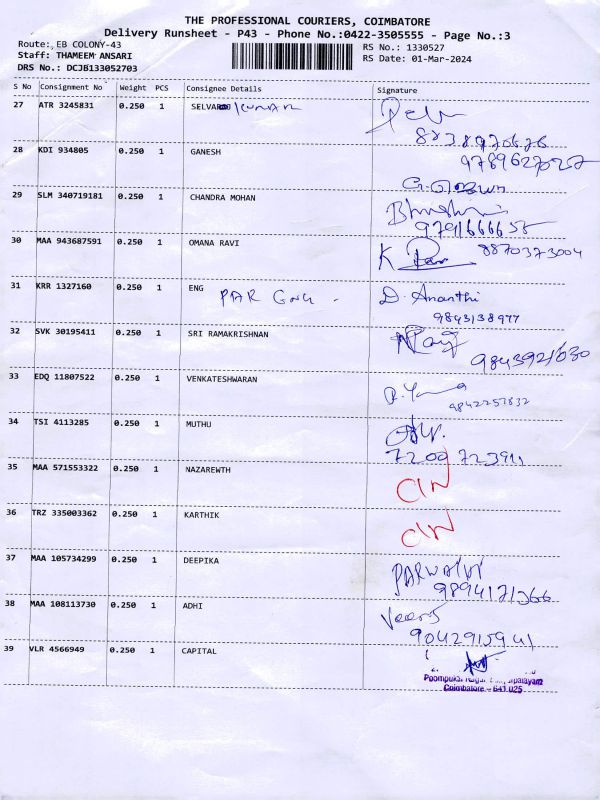 THE PROFESSIONAL COURIERS, COIMBATORE
Delivery Runsheet - P43 - Phone No.:0422-3505555 - Page No.:3
Route: EB COLONY-43
Staff: THAMEEM ANSARI
DRS No.: DCJB133052703
RS No.: 1330527
RS Date: 01-Mar-2024
S No Consignment No Weight PCS Consignee Details Signature
27 ATR 3245831 0.250 1 SELVA KUMAR
28 KDI 934805 0.250 1 GANESH
9789627027
29 SLM 340719181 0.250 1 CHANDRA MOHAN
9791666658
30 MAA 943687591 0.250 1 OMANA RAVI
K 8870373004
31 KRR 1327160 0.250 1 ENG
D. Ananthi
9843138977
32 SVK 30195411 0.250 1 SRI RAMAKRISHNAN
9843921030
33 EDQ 11807522 0.250 1 VENKATESHWARAN
9842257832
34 TSI 4113285 0.250 1 MUTHU
7200723911
35 MAA 571553322 0.250 1 NAZAREWTH
CIN
36 TRZ 335003362 0.250 1 KARTHIK
CIN
37 MAA 105734299 0.250 1 DEEPIKA
9894171366
38 MAA 108113730 0.250 1 ADHI
9042915941
39 VLR 4566949 0.250 1 CAPITAL
Coimbatore - 641 025